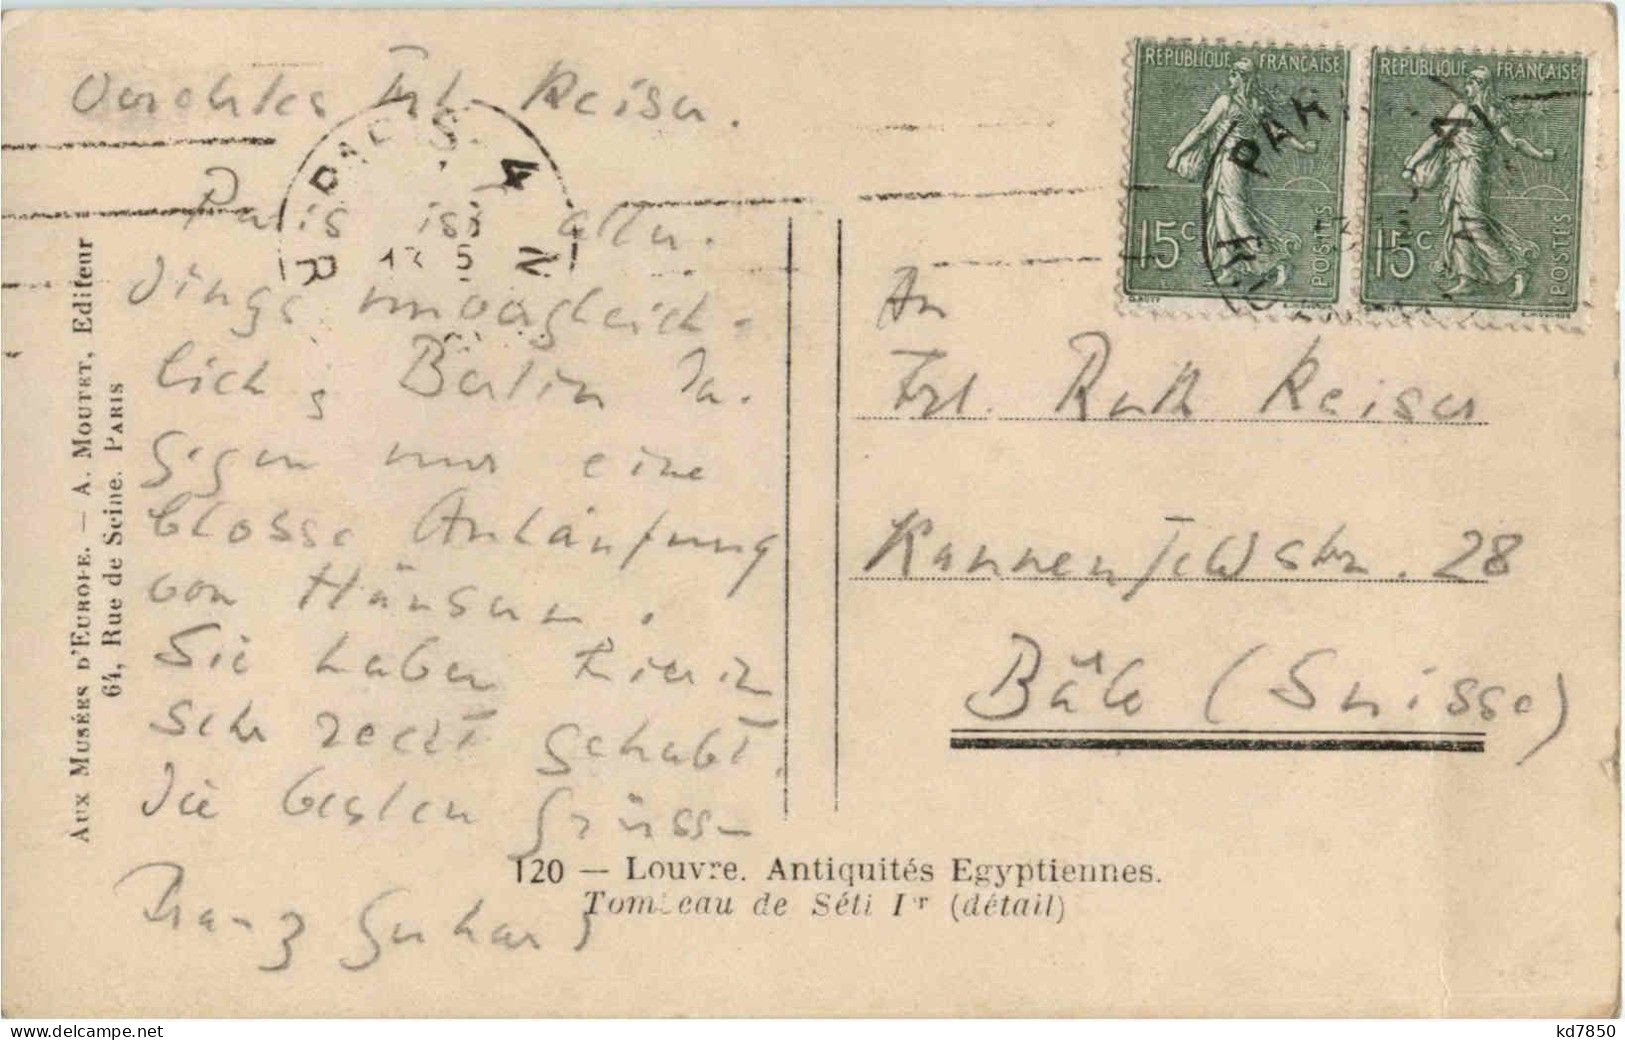 Verehrtes Frl. Reiser.
Paris ist aller-
dings unvergleich-
lich; Berlin da-
gegen nur eine
blosse Anhäufung
von Häusern.
Sie haben hierin
sehr recht gehabt.
Die besten Grüsse
Franz
An
Frl. Ruth Reiser
Kannenfeldstr. 28
Bâle (Suisse)
RÉPUBLIQUE FRANÇAISE
15c POSTES
RÉPUBLIQUE FRANÇAISE
15c POSTES
PARIS
Aux Musées d'Europe. — A. Moutet, Editeur
64, Rue de Seine. Paris
120 — Louvre. Antiquités Egyptiennes.
Tombeau de Séti Ier (détail)
kd7850
www.delcampe.net